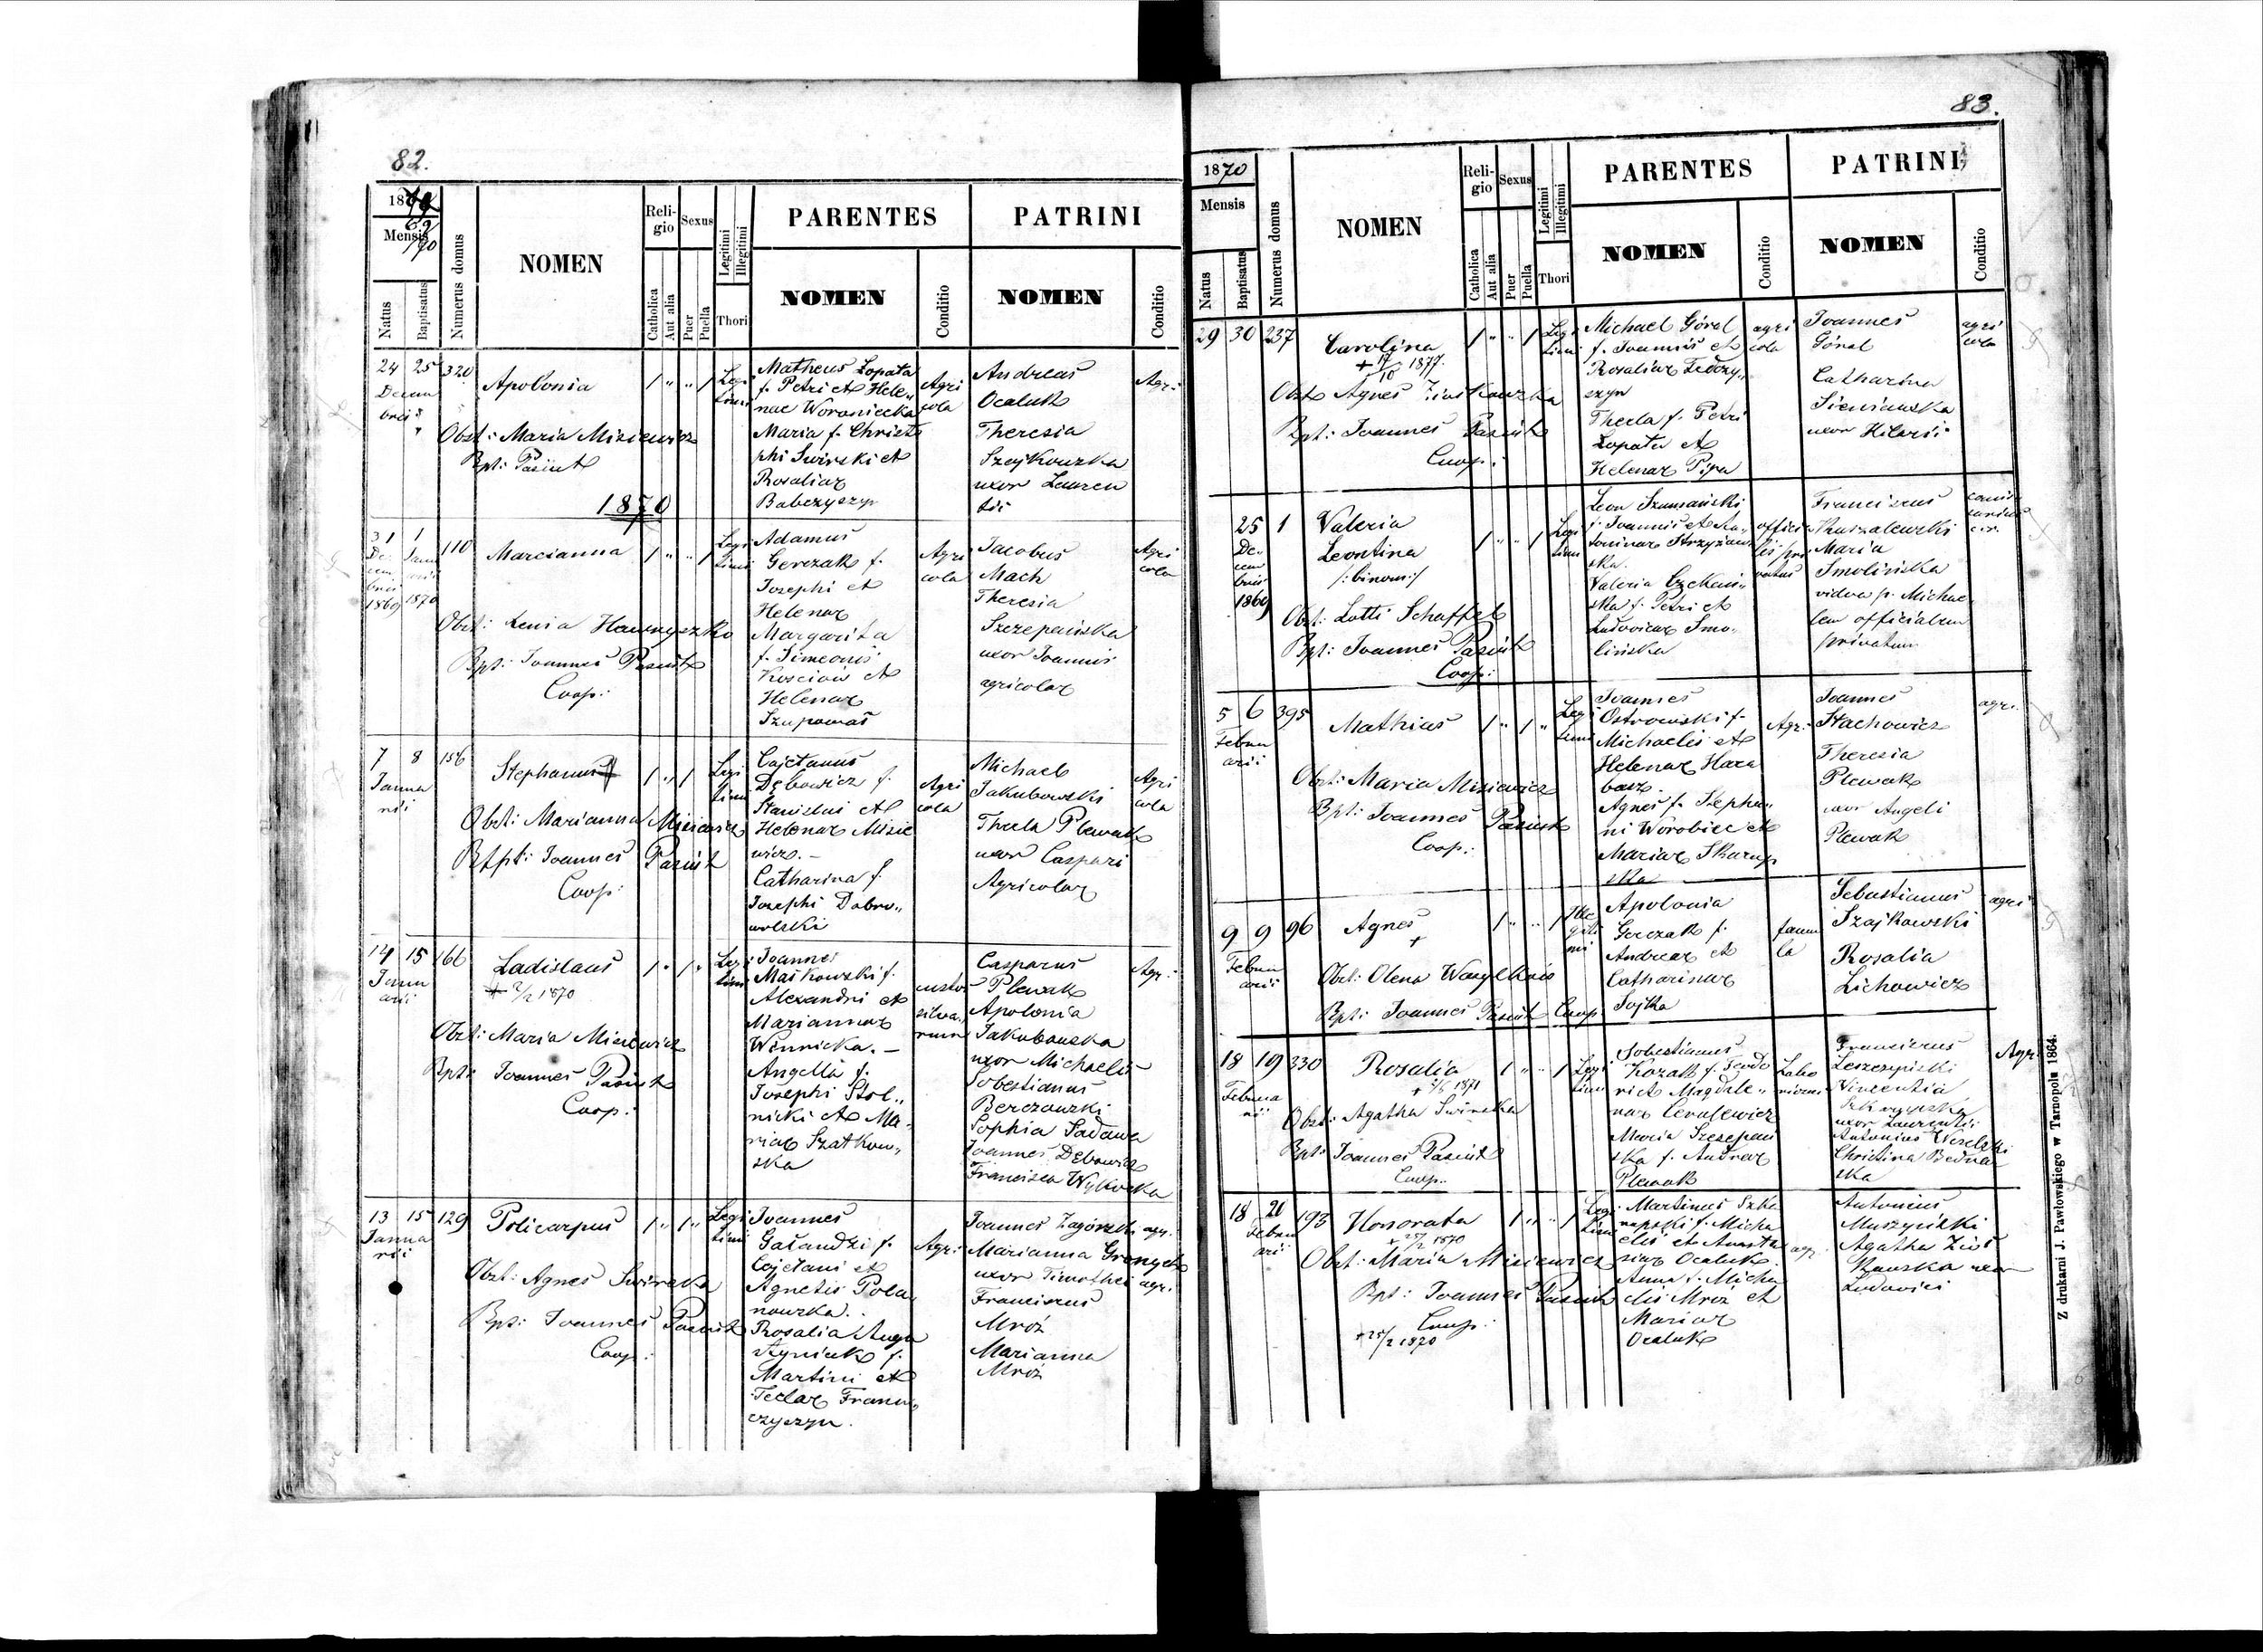 82.
1869/70
Mensis
Natus
Baptisatus
Numerus domus
NOMEN
Reli-
gio
Catholica
Aut alia
Sexus
Puer
Puella
Legitimi
Illegitimi
Thori
PARENTES
NOMEN
Conditio
PATRINI
NOMEN
Conditio
24 25 320
Decem
bris
Apolonia
1 " " 1
Legi
timi
Obst: Maria Misiewicz
Bpt: Pasiut
Matheus Łopata
f. Petri et Hele„
nae Woroniecka
Maria f. Christo
phi Swirski et
Rosaliae
Babczyszyn
Agri
cola
Andreas
Ocaluk
Theresia
Szajkowska
uxor Lauren
tii
Agri:
1870
31 1 110
De
cem
bris
1869
Janu
arii
1870
Marcianna
1 " " 1
Legi
timi
Obst: Xenia
Bpt: Joannes Pasiut
Coop:
Adamus
Gerczak f.
Josephi et
Helenae
Margarita
f. Simeonis
Kosciow et
Helenae
Agri
cola
Jacobus
Mach
Theresia
Szczepańska
uxor Joannis
agricolae
Agri
cola
7 8 156
Janua
rii
Stephanus
1 " 1
Legi
timi
Obst: Marianna Misiewicz
Bapt: Joannes Pasiut
Coop:
Cajetanus
Dębowicz f.
Stanislai et
Helenae Misie
wicz.-
Catharina f.
Josephi Dobro„
wolski
Agri
cola
Michael
Jakubowski
Thecla Plewak
uxor Caspari
Agricolae
Agri
cola
14 15 166
Janu
arii
Ladislaus
+ 2/2 1870
1 " 1 "
Legi
timi
Obst: Maria Misiewicz
Bpt: Joannes Pasiut
Coop:
Joannes
Maśkowski f.
Alexandri et
Mariannae
Winnicka.-
Angella f.
Josephi Stol„
nicki et Ma„
riae Szatkow„
ska
custos
silva
rum
Casparus
Plewak
Apolonia
Jakubowska
uxor Michaelis
Sebestianus
Berezowski
Sophia Sadowa
Joannes Dębowicz
Francisca Wysocka
Agr:
13 15 129
Janua
rii
Policarpus
1 " 1 "
Legi
timi
Obst: Agnes Swirska
Bpt: Joannes Pasiut
Coop:
Joannes
Gałandzi f.
Cajetani et
Agnetis Pola
nowska.
Rosalia Augu
styniak f.
Martini et
Teclae Franu„
czyszyn.
Agri:
Joannes Zagórski agr.
Marianna
uxor Timothei agr.
Franciscus
Mróz
Marianna
Mróz
83.
1870
Mensis
Natus
Baptisatus
Numerus domus
NOMEN
Reli-
gio
Catholica
Aut alia
Sexus
Puer
Puella
Legitimi
Illegitimi
Thori
PARENTES
NOMEN
Conditio
PATRINI
NOMEN
Conditio
29 30 237
Carolina
+ 17/10 1877.
1 " " 1
Legi
timi
Obst: Agnes Ziutkowska
Bpt: Joannes Pasiut
Coop:
Michael Góral
f. Joannis et
Rosaliae Fedczy„
szyn
Thecla f. Petri
Łopata et
Helenae Pipa
agri
cola
Joannes
Góral
Catharina
Sieniawska
uxor Hilarii
agri
cola
25 1
De
cem
bris
1869
Valeria
Leontina
/:binom:/
1 " " 1
Legi
timi
Obst: Lotti Schaffel
Bpt: Joannes Pasiut
Coop:
Leon Szumański
f. Joannis et An„
toninae Strzyżew
ska.
Valeria Czekań„
ska f. Petri et
Ludovicae Smo„
lińska
officia
lis pri
vatus
Franciscus
Maria
Smolińska
vidua p. Michae
lem officialem
privatum
5 6 395
Febru
arii
Mathias
1 " 1 "
Legi
timi
Obst: Maria Misiewicz
Bpt: Joannes Pasiut
Coop:
Joannes
Ostrowski f.
Michaelis et
Helenae Hara
basz.
Agnes f. Stepha„
ni Worobiec et
Mariae Skarup
ska
Agr:
Joannes
Stachowicz
Theresia
Plewak
uxor Angeli
Plewak
agr.
9 9 96
Febru
arii
Agnes
+
1 " " 1
Ille
giti
mi
Obst: Olena Wasylków
Bpt: Joannes Pasiut Coop
Apolonia
Gerczak f.
Andreae et
Catharinae
Sojka
famu
la
Sebastianus
Szajkowski
Rosalia
Lichowicz
agri
18 19 330
Februa
rii
Rosalia
1 " " 1
Legi
timi
Obst: Agatha Swirska
Bpt: Joannes Pasiut
Coop.
Sebestianus
Kozak f. Teodo
ri et Magdale„
nae
Maria Szczepań
ska f. Andreae
Plewak
Labo
riosus
Franciscus
Leszczyński
Vincentia
uxor Laurentii
Antonius Weselski
Christina Bednar
ska
Agr.
18 20 193
Febru
arii
Honorata
+ 25/2 1870
1 " " 1
Legi
timi
Obst: Maria Misiewicz
Bpt: Joannes Pasiut
Coop:
+25/2 1870
Martinus Szka
rupski f. Micha
elis et Anasta
siae Ocaluk.
Anna f. Micha
elis Mróz et
Mariae
Ocaluk
agr.
Antonius
Muszyński
Agatha Ziół
kowska uxor
Ludovici
Z drukarni J. Pawłowskiego w Tarnopolu 1864.